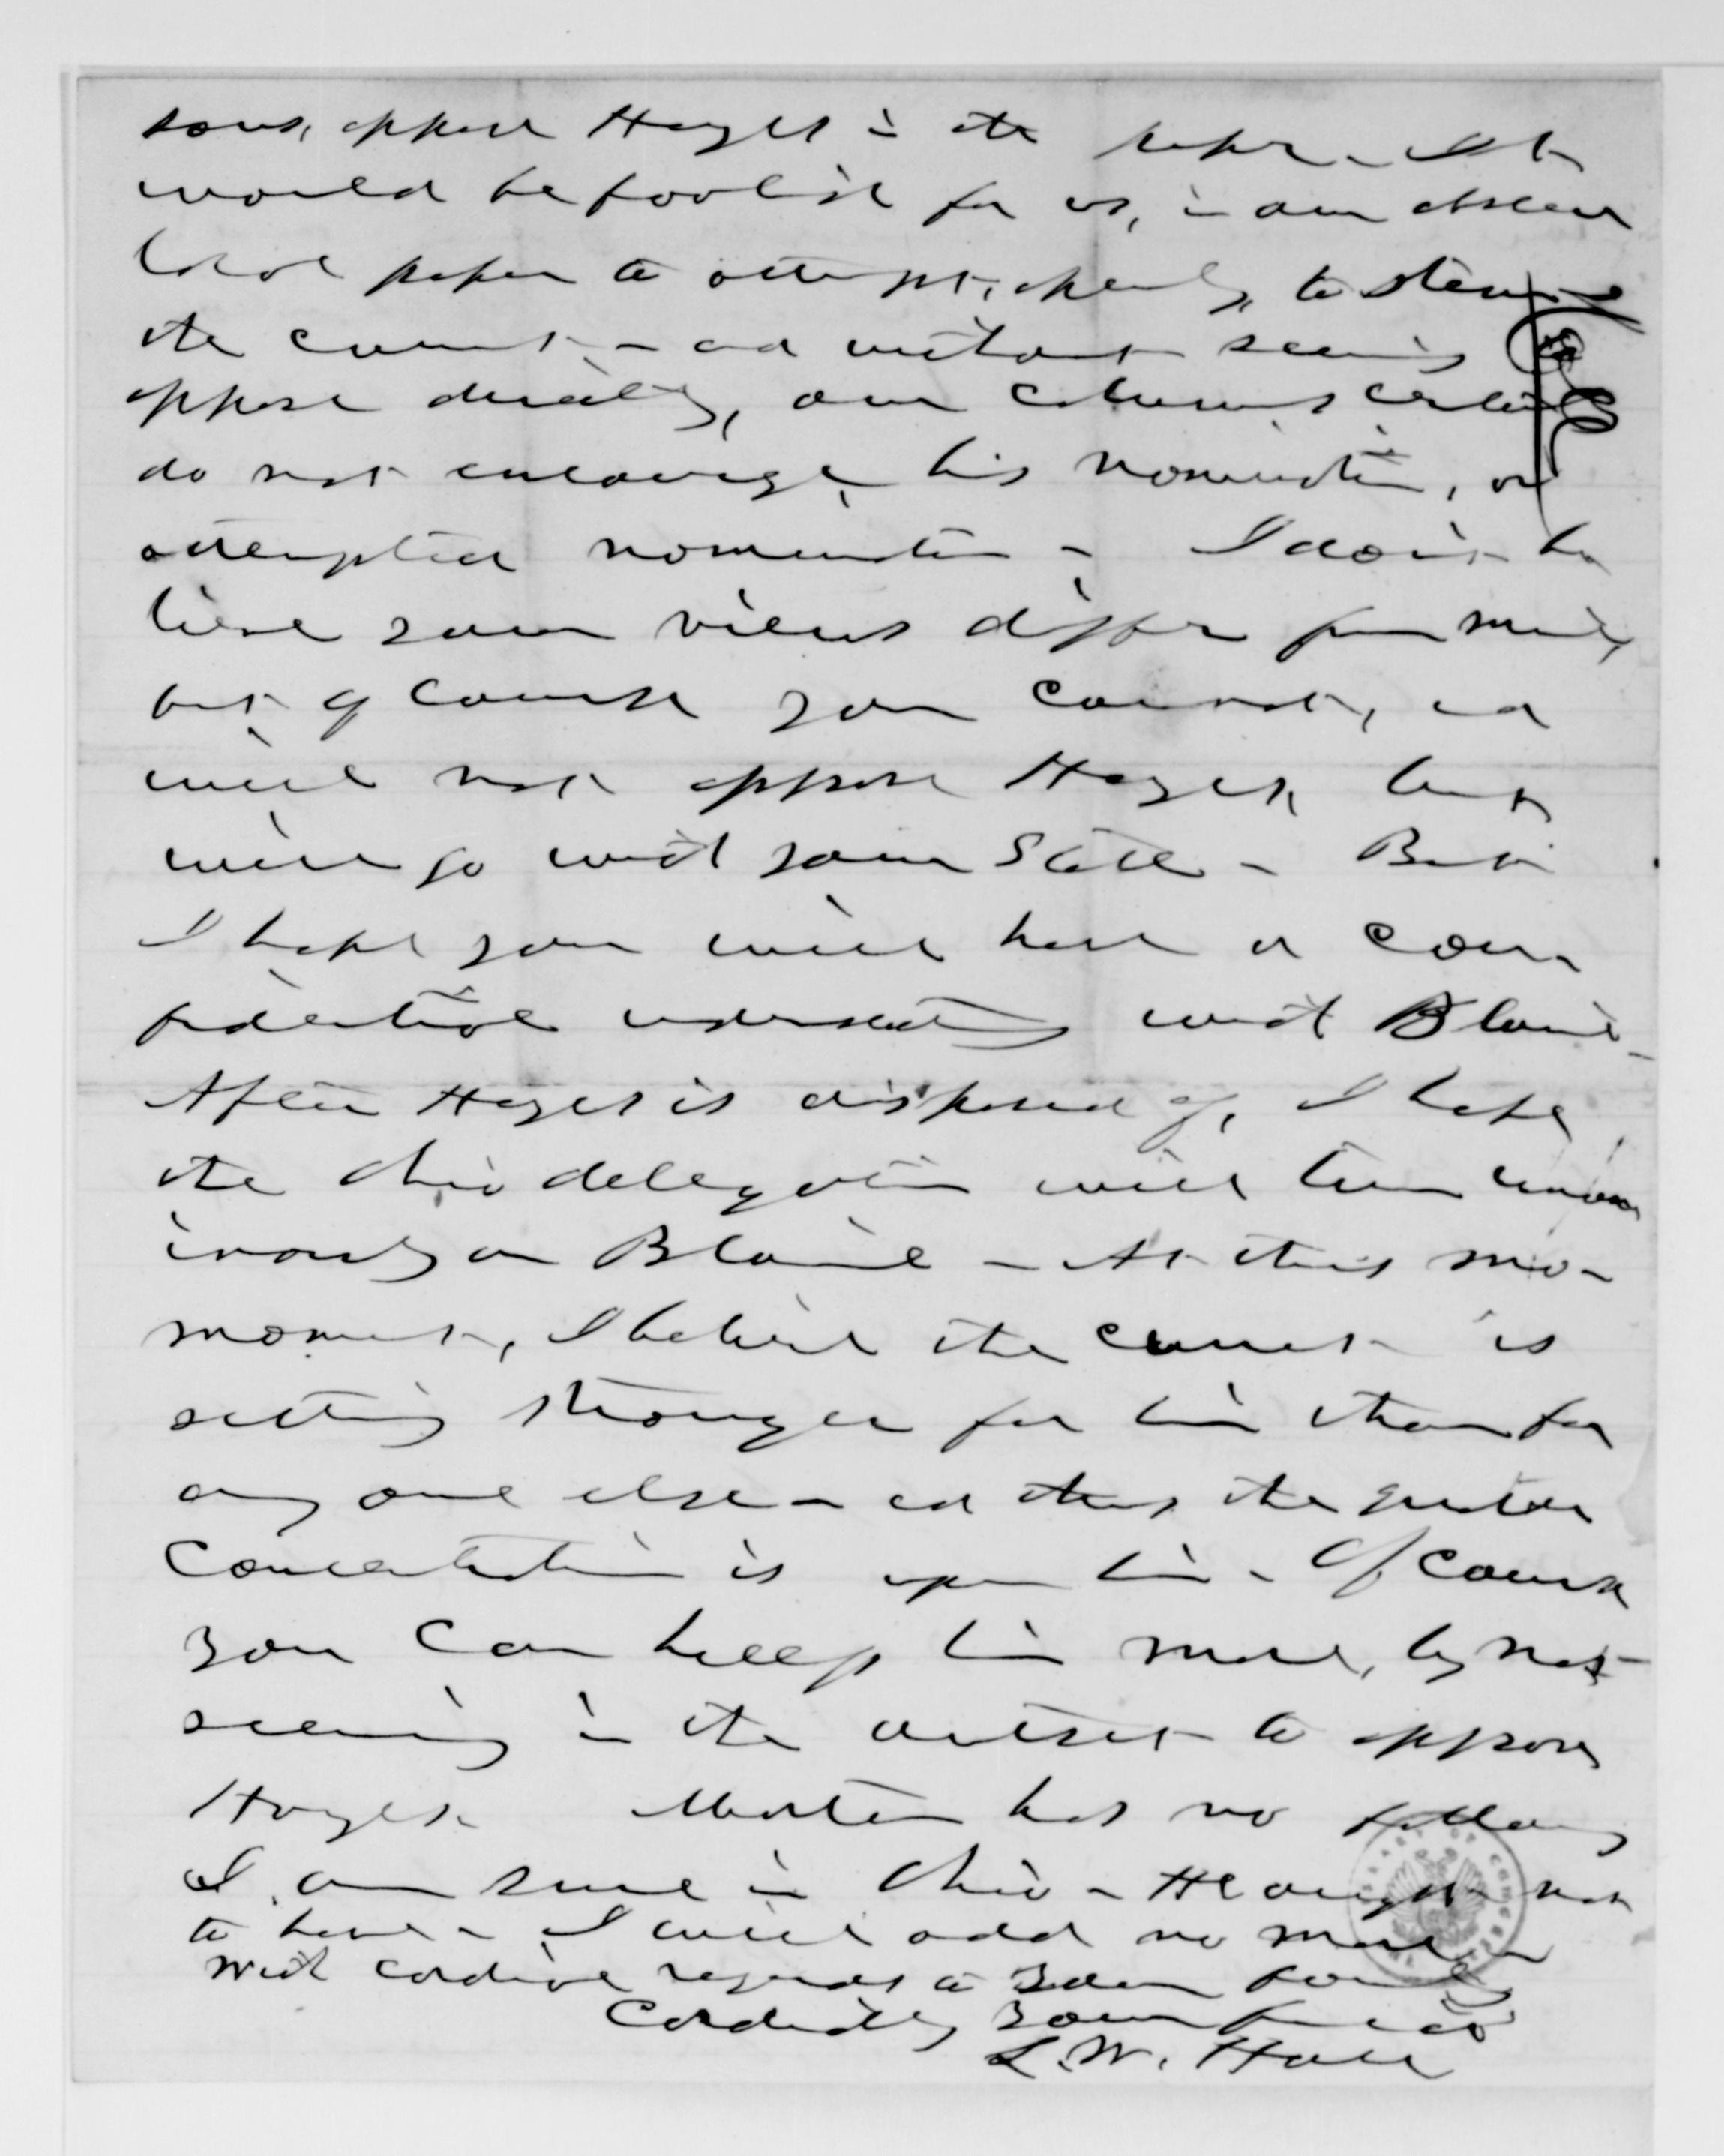 sons, oppose Hayes in the paper - It
would be foolish for us, in our obscure
local paper to attempt, openly, to stem
the current - and without seeming to
oppose directly, our columns certainly
do not encourage his nomination, or
attempted nomination - I don't be
lieve your views differ from mine,
but of course you cannot, and
will not oppose Hayes, but
will go with your State - But
I hope you will have a con-
fidential understanding with Blaine -
After Hayes is disposed of, I hope
the Ohio delegation will turn unan
imously on Blaine - At this mo-
moment, I believe the current is
setting stronger for him than for
any one else - and thus the greater
concentration is upon him - Of course
you can help him more, by not
seeming in the outset to oppose
Hayes. Morton has no following
I am sure in Ohio - He ought not
to have - I will add no more -
With cordial regards to your family
Cordially your friend
L. W. Hall